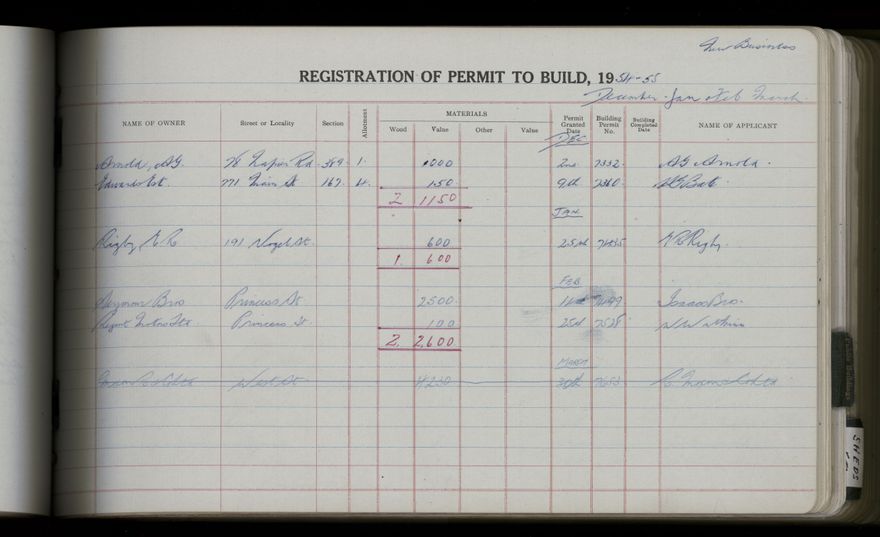 New Business
REGISTRATION OF PERMIT TO BUILD, 1954-55
December Jan Feb March
NAME OF OWNER Street or Locality Section Allotment MATERIALS Permit Granted Date Building Permit No. Building Completed Date NAME OF APPLICANT
Wood Value Other Value
DEC
Arnold, A.G. 78 Napier Rd 389 1. 1000 2nd 7332. A G Arnold.
771 Main St 167. 4. 150 9th 7360.
2 1150
JAN
Rigby 191 Vogel St. 600 25th Rigby.
1. 600
FEB
Seymour Bros Princess St. 2500 Isaac Bros.
Princess St. 100 25th 7528
2. 2,600
MARCH
West St 4250 30th
SHEDS